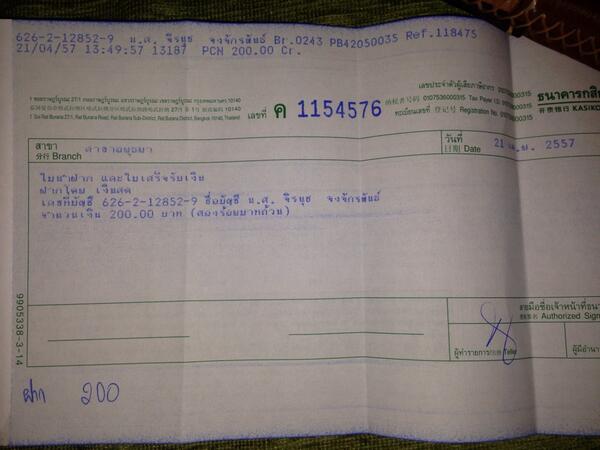 626-2-12852-9 น.ส. จีรนุช จงจักรพันธ์ Br.0243 PB42050035 Ref.118475
21/04/57 13:49:57 13187 PCN 200.00 Cr.
เลขประจำตัวผู้เสียภาษีอากร 0107536000315
納税者番号 0107536000315 Tax Payer I.D.
ทะเบียนเลขที่ 登记号 Registration No. 0107536000315
ธนาคารกสิก
开泰银行 KASIKO
1 ซอยราษฎร์บูรณะ 27/1 ถนนราษฎร์บูรณะ แขวงราษฎร์บูรณะ เขตราษฎร์บูรณะ กรุงเทพมหานคร 10140
1 Soi Rat Burana 27/1, Rat Burana Road, Rat Burana Sub-District, Rat Burana District, Bangkok 10140, Thailand
เลขที่ ค 1154576
สาขา
分行 Branch
สาขาอยุธยา
วันที่
日期 Date
21 เม.ย. 2557
ใบนำฝาก และใบเสร็จรับเงิน
ฝากโดย เงินสด
เลขที่บัญชี 626-2-12852-9 ชื่อบัญชี น.ส. จีรนุช จงจักรพันธ์
จำนวนเงิน 200.00 บาท (สองร้อยบาทถ้วน)
9905338-3-14
ลงมือชื่อเจ้าหน้าที่ธนา
Authorized Sign
ผู้ทำรายการ Teller
ผู้มีอำนา
ฝาก 200